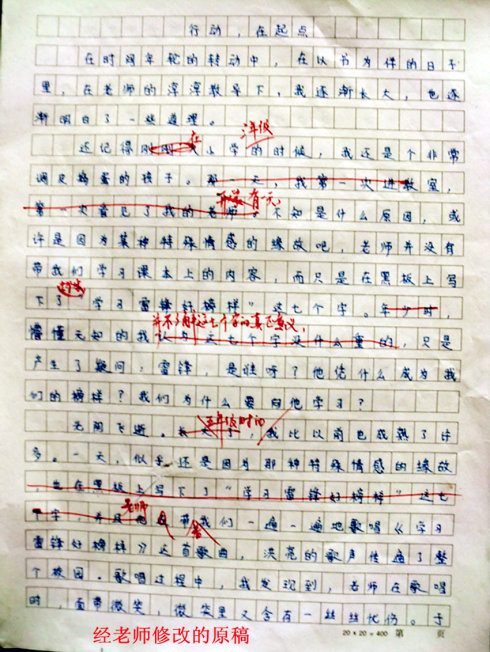 行动，在起点
在时间年轮的转动中，在以书为伴的日子
里，在老师的谆谆教导下，我逐渐长大，也逐
渐明白了一些道理。
在 三年级
还记得刚刚 小学的时候，我还是个非常
调皮捣蛋的孩子。那一天，我第一次进教室，
开学 有一天，
第一次看见了我的老师。不知是什么原因，或
许是因为某种特殊情感的缘故吧，老师并没有
带我们学习课本上的内容，而只是在黑板上写
下了“学习雷锋好榜样”这七个字。年少时，
并不了解这七个字的真正意义，
懵懂无知的我认为这七个字没什么重的，只是
产生了疑问：雷锋，是谁呀？他凭什么成为我
们的榜样？我们为什么要向他学习？
五年级时间
光阴飞逝。长大了，我比以前也成熟了许
多。一天，似乎还是因为那种特殊情感的缘故
，当在黑板上写下了“学习雷锋好榜样”这七
老师
个字，并且 带我们一遍一遍地歌唱《学习
雷锋好榜样》这首歌曲，洪亮的歌声传遍了整
个校园。歌唱过程中，我发现到，老师在歌唱
时，面带微笑，微笑里又含有一丝丝忧伤。于
经老师修改的原稿
20×20=400 第 页